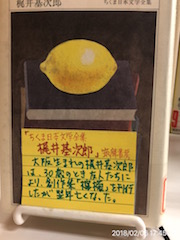 梶井基次郎 ちくま日本文学全集
"ちくま日本文学全集
梶井基次郎"
大阪生まれの梶井基次郎
は、30歳のとき友人たちに
より、創作集「檸檬」を刊行
したが翌年亡くなった。
2018/02/06